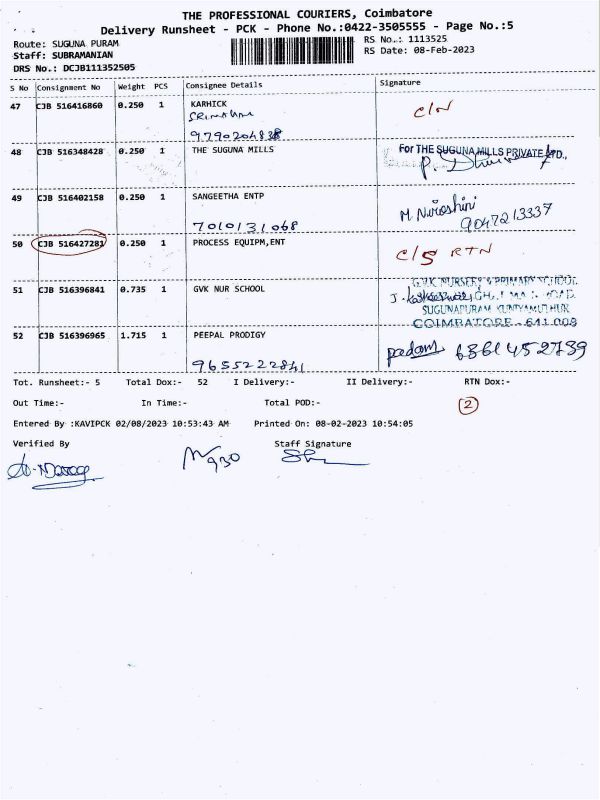 THE PROFESSIONAL COURIERS, Coimbatore
Delivery Runsheet - PCK - Phone No.:0422-3505555 - Page No.:5
Route: SUGUNA PURAM
RS No..: 1113525
Staff: SUBRAMANIAN
RS Date: 08-Feb-2023
DRS No.: DCJB111352505
S No Consignment No Weight PCS Consignee Details Signature
47 CJB 516416860 0.250 1 KARHICK C/N
9790204838
48 CJB 516348428 0.250 1 THE SUGUNA MILLS For THE SUGUNA MILLS PRIVATE LTD.,
49 CJB 516402158 0.250 1 SANGEETHA ENTP M. Niroshini
7010131068 9047213337
50 CJB 516427281 0.250 1 PROCESS EQUIPM,ENT C/S RTN
51 CJB 516396841 0.735 1 GVK NUR SCHOOL GVK NURSERY & PRIMARY SCHOOL
SUGUNAPURAM, KUNIYAMUTHUR
COIMBATORE - 641 008
52 CJB 516396965 1.715 1 PEEPAL PRODIGY padam
9655222841
Tot. Runsheet:- 5 Total Dox:- 52 I Delivery:- II Delivery:- RTN Dox:-
Out Time:- In Time:- Total POD:- 2
Entered By :KAVIPCK 02/08/2023 10:53:43 AM Printed On: 08-02-2023 10:54:05
Verified By Staff Signature